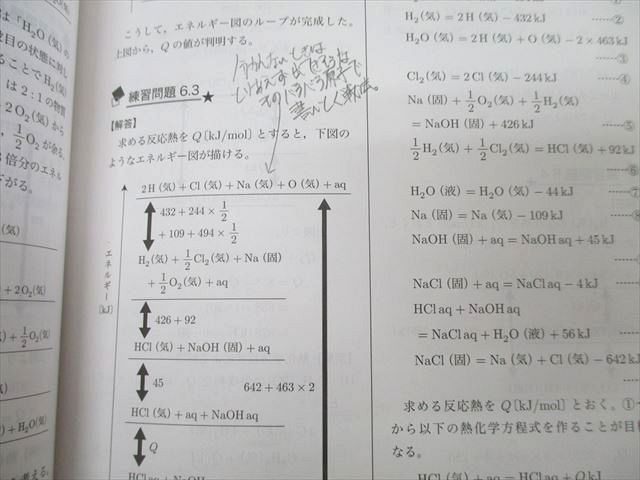 は「H₂O(気)の
段目の状態に到
ることでH₂(気)
は2:1の物質
2O₂(気)から
1/2 O₂が余る。
倍分のエネル
下がる。
(気)
+2O₂(気)
+ 1/2 O₂(気)
+H₂O(気)
こうして,エネルギー図のループが完成した。
上図から,Qの値が判明する。
練習問題 6.3 ★
【解答】
求める反応熱をQ〔kJ/mol〕とすると,下図の
ようなエネルギー図が描ける。
エネルギー〔kJ〕
2H(気)+Cl(気)+Na(気)+O(気)+aq
432+244× 1/2
+109+494× 1/2
H₂(気)+ 1/2 Cl₂(気)+Na(固)
+ 1/2 O₂(気)+aq
426+92
HCl(気)+NaOH(固)+aq
45
642+463×2
HCl(気)+aq+NaOHaq
Q
H₂(気)=2H(気)-432kJ ……②
H₂O(気)=2H(気)+O(気)-2×463kJ
……③
Cl₂(気)=2Cl(気)-244kJ ……④
Na(固)+ 1/2 O₂(気)+ 1/2 H₂(気)
=NaOH(固)+426kJ ……⑤
1/2 H₂(気)+ 1/2 Cl₂(気)=HCl(気)+92kJ
……⑥
H₂O(液)=H₂O(気)-44kJ ……⑦
Na(固)=Na(気)-109kJ ……⑧
NaOH(固)+aq=NaOHaq+45kJ
NaCl(固)+aq=NaClaq-4kJ
HClaq+NaOHaq
=NaClaq+H₂O(液)+56kJ
NaCl(固)=Na(気)+Cl(気)-642kJ
求める反応熱をQ〔kJ/mol〕とおく。①
から以下の熱化学方程式を作ることが目
なる。
HCl(気)+aq=HClaq+QkJ